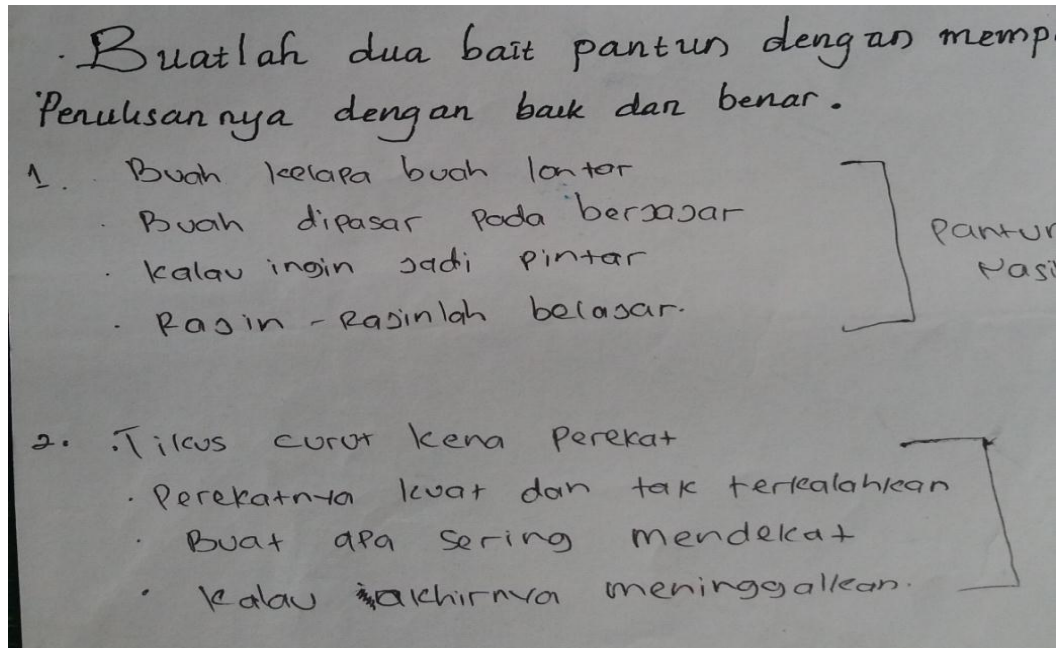 . Buatlah dua bait pantun dengan memp
Penulisannya dengan baik dan benar.
1. Buah kelapa buah lontar
. Buah dipasar pada berjajar
. kalau ingin jadi pintar
. Rajin - Rajinlah belajar.
Pantun
Nasi
2. . Tikus curut kena perekat
. Perekatnya kuat dan tak terkalahkan
. Buat apa sering mendekat
. kalau akhirnya meninggalkan.